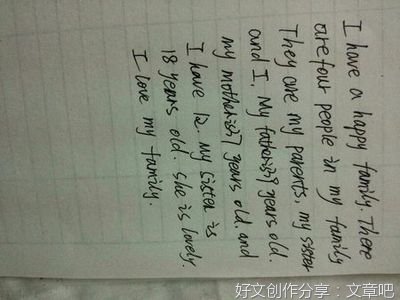 I have a happy family. There
are four people in my family
They are my parents, my sister
and I. My father is 39 years old.
my mother is 37 years old. and
I have 12. My sister is
18 years old. She is lovely.
I love my family.
好文创作分享：文章吧